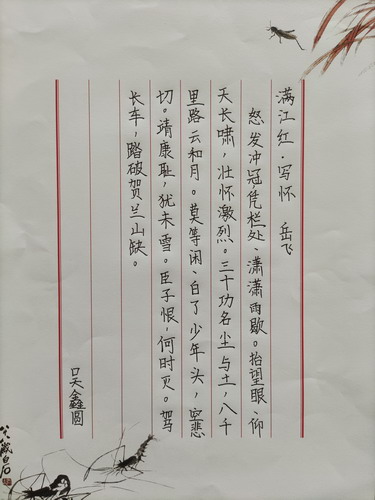 满江红·写怀 岳飞
怒发冲冠,凭栏处、潇潇雨歇。抬望眼、仰
天长啸,壮怀激烈。三十功名尘与土,八千
里路云和月。莫等闲、白了少年头,空悲
切。靖康耻,犹未雪。臣子恨,何时灭。驾
长车,踏破贺兰山缺。
吴鑫圆
白石